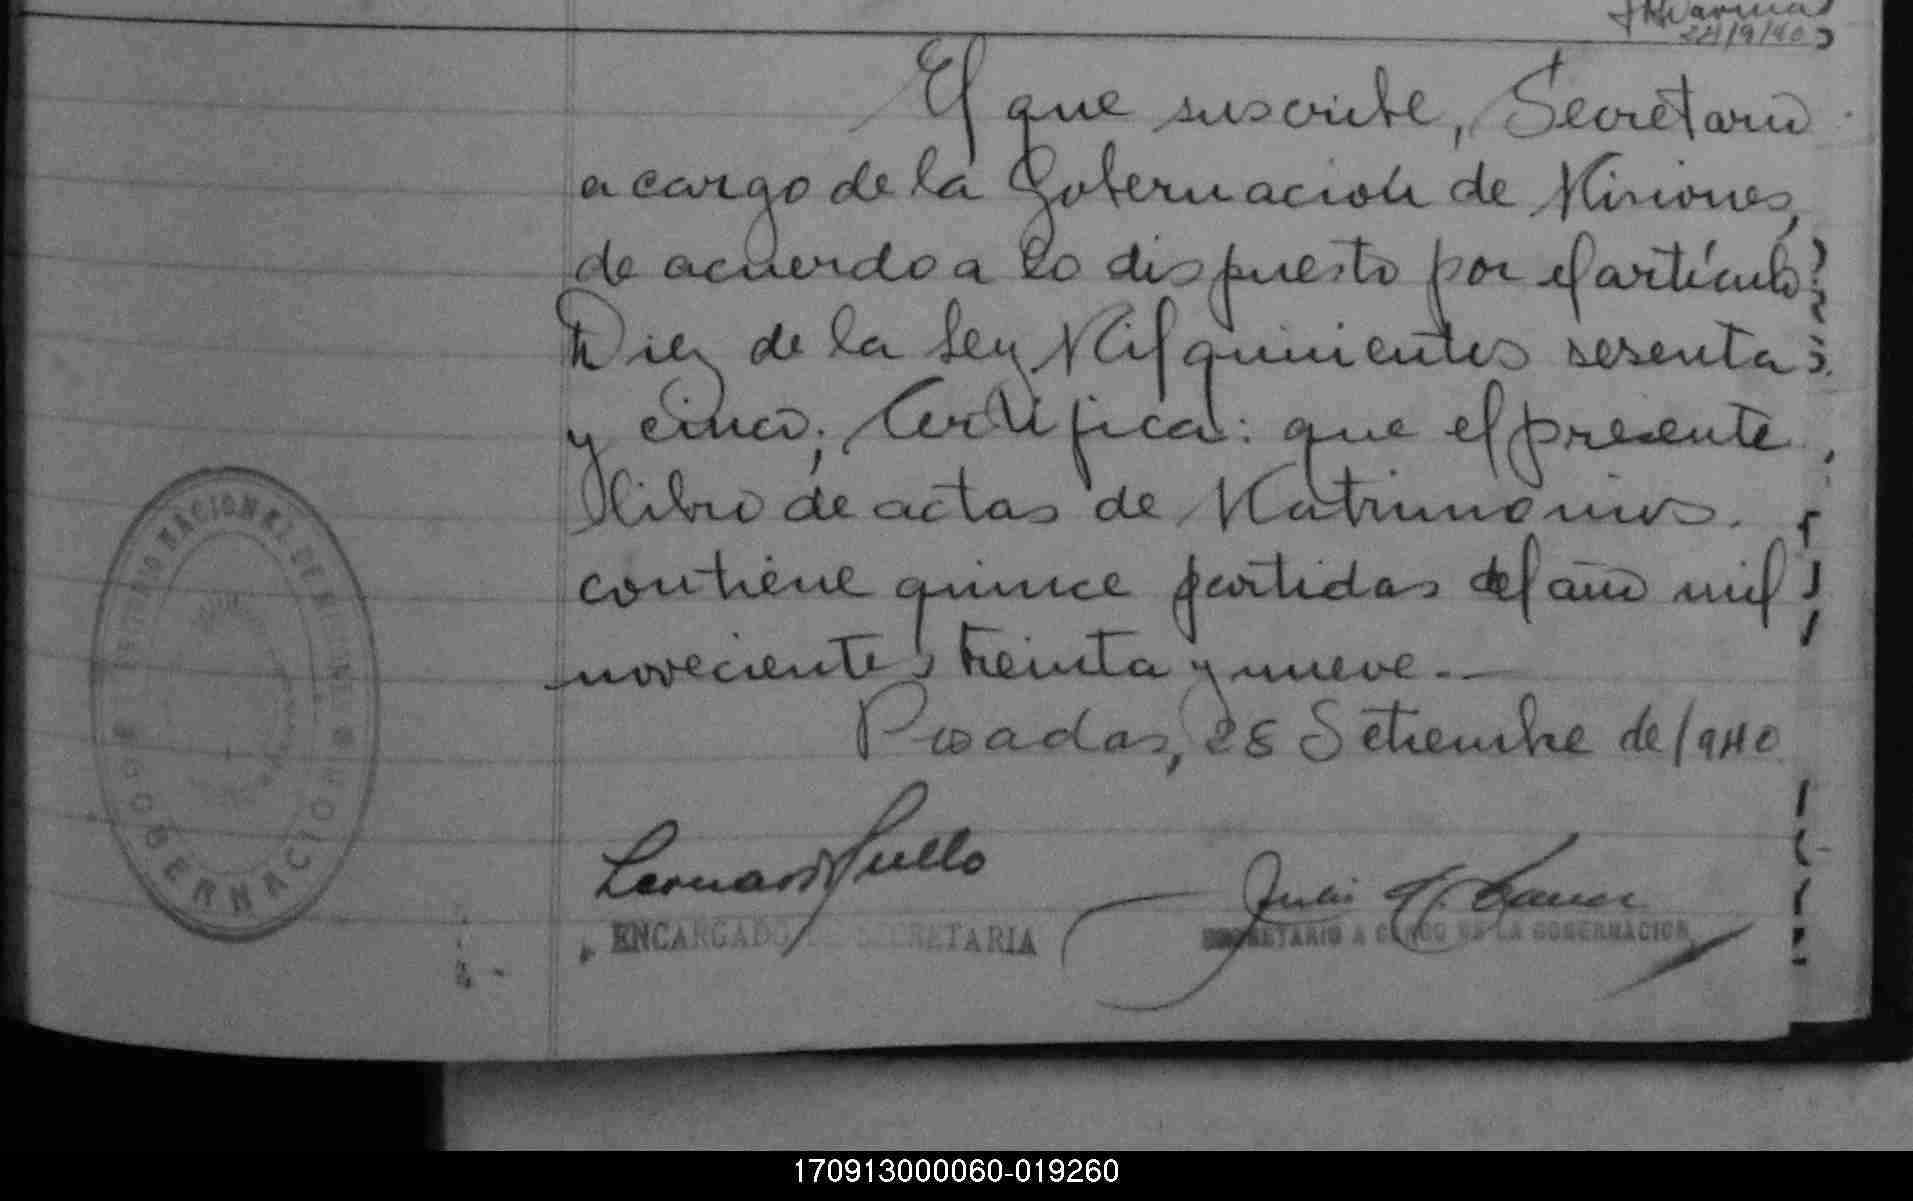 22/9/40
El que suscribe, Secretario
a cargo de la Gobernacion de Misiones,
de acuerdo a lo dispuesto por el artículo
Diez de la Ley Mil quinientos sesenta
y cinco, Certifica: que el presente
libro de actas de Matrimonios.
contiene quince partidas del año mil
novecientos treinta y nueve.—
Posadas, 28 Setiembre de 1940
TERRITORIO NACIONAL DE MISIONES
GOBERNACION
ENCARGADO DE SECRETARIA
SECRETARIO A CARGO DE LA GOBERNACION
170913000060-019260